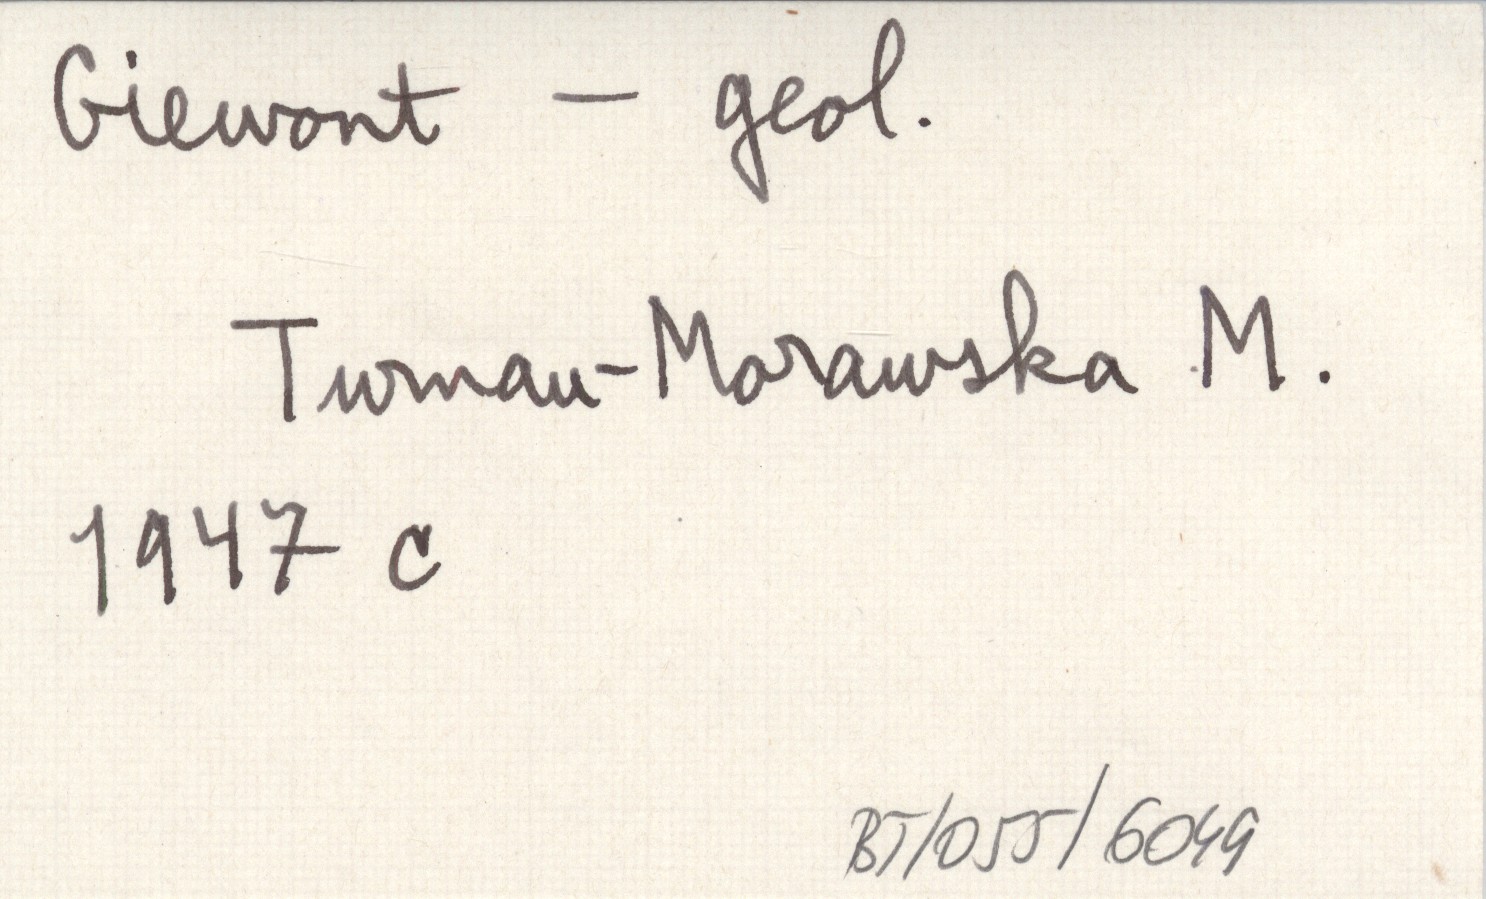 Giewont – geol.
Turnau-Morawska M.
1947 c
BT/055/6049